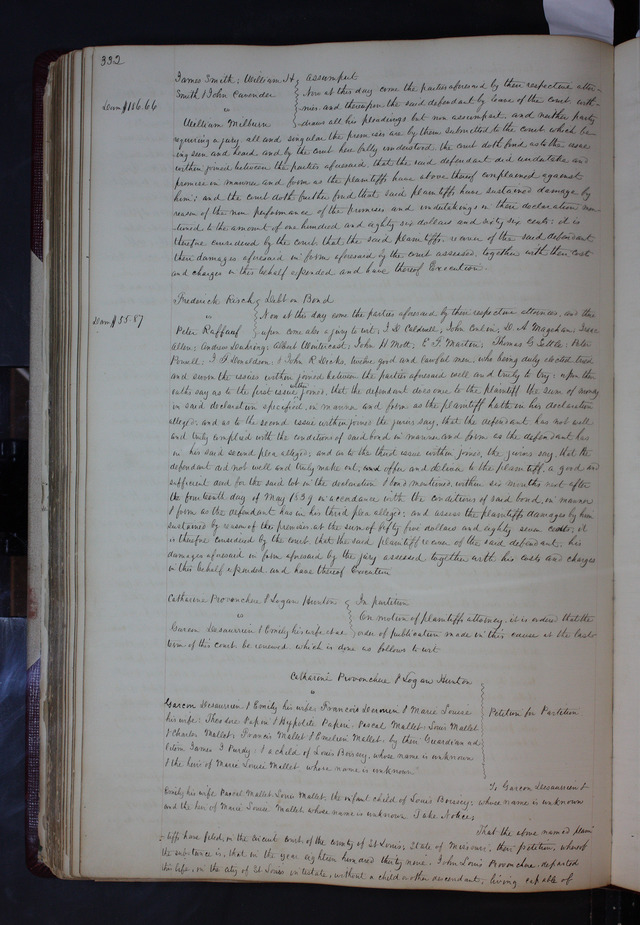 332
James Smith, William H, } Assumpsit
Smith & John Cavender } Now at this day come the parties aforesaid by their respective attor-
Dam $186.66
vs } nies and thereupon the said defendant by leave of the court with-
William Milburn } draws all his pleadings but non assumpsit, and neither party
requiring a jury, all and singular the premises are by them submitted to the court which be-
ing seen and heard and by the court here fully understood the court doth find as to the issue
within joined between the parties aforesaid, that the said defendant did undertake and
promise in manner and form as the plaintiffs have above thereof complained against
him; and the court doth further find that said plaintiffs have sustained damage by
reason of the non performance of the promises and undertakings in their declaration men-
tioned to the amount of one hundred and eighty six dollars and sixty six cents: it is
therefore considered by the court that the said plaintiffs recover of the said defendant,
their damages aforesaid in form aforesaid by the court assessed, together with their costs
and charges in this behalf expended and have thereof Execution.
Frederick Kirsch } Debt on Bond
Dam $55.87
vs } Now at this day come the parties aforesaid by their respective attornies, and there
Peter Raffauf } upon come also a jury to wit: J. D. Caldwell, John Carlin, D. A. Magehan, Isaac
Allen, Andrew Denkring, Albert John H Mott, E. F. Maiton, Thomas G Settle, Peter
Powell, I. S. Donaldson, & John R Dicks, twelve good and lawful men, who being duly elected tried
and sworn the issues within joined between the parties aforesaid well and truly to try: upon their
oaths say as to the first issue within joined, that the defendant does owe to the plaintiff the sum of money
in said declaration specified, in manner and form as the plaintiff hath in his declaration
alleged; and as to the second issue within joined the jurors say, that the defendant has not well
and truly complied with the conditions of said bond in manner and form as the defendant has
in his said second plea alleged; and as to the third issue within joined, the jurors say, that the
defendant did not well and truly make out, and offer and deliver to the plaintiff, a good and
sufficient deed for the said lot in the declaration & bond mentioned, within six months next after
the fourteenth day of May 1839 in accordance with the conditions of said bond, in manner
& form as the defendant has in his third plea alleged; and assess the plaintiffs damages by him
sustained by reason of the premises at the sum of fifty five dollars and eighty seven cents; it
is therefore considered by the court that the said plaintiff recover of the said defendant, his
damages aforesaid in form aforesaid by the jury assessed, together with his costs and charges
in this behalf expended and have thereof Execution
Catharine Provonchee & Logan Hunton } In partition
vs } On motion of plaintiffs attorney, it is ordered that the
Garcon Desaurrien & Emily his wife et al } order of publication made in this cause at the last
term of this court be renewed which is done as follows to wit
Catharine Provonchee & Logan Hunton
vs
Garcon Desaurrien & Emily his wife, Francois & Marie Louise
his wife: Theodore Papin & Hypolite Papin, Pascal Mallet, Louis Mallet } Petition for Partition
& Charles Mallet, Francis Mallet & Emelien Mallet, by their Guardian ad
litem James J Purdy, & a child of Louis Boissey, whose name is unknown
& the heir of Marie Louise Mallet whose name is unknown
To Garcon Dessaurien &
Emily his wife Pascal Mallet, Louis Mallet, the infant child of Louis Boissey, whose name is unknown
and the heir of Marie Louise Mallet whose name is unknown Take Notice,
That the above named plain-
tiffs have filed, in the circuit court of the county of St Louis, State of Missouri, their petition, whereof
the substance is, that in the year eighteen hundred thirty nine, John Louis Provonchee, departed
this life, in the city of St Louis intestate, without a child or other descendant, living capable of